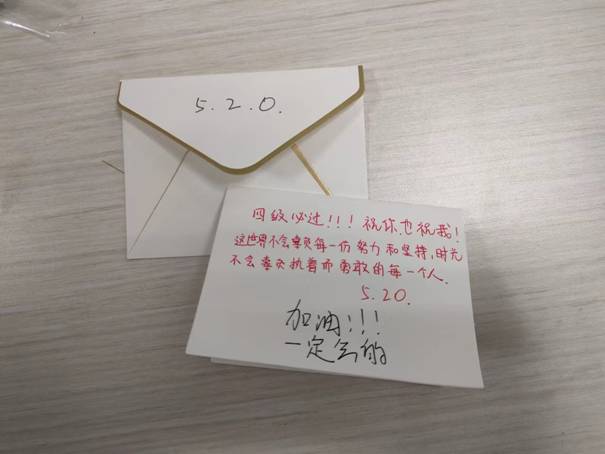 5.2.0.
四级必过!!! 祝你也祝我!
这世界不会辜负每一份努力和坚持,时光
不会辜负执着而勇敢的每一个人.
5.20.
加油!!!
一定会的